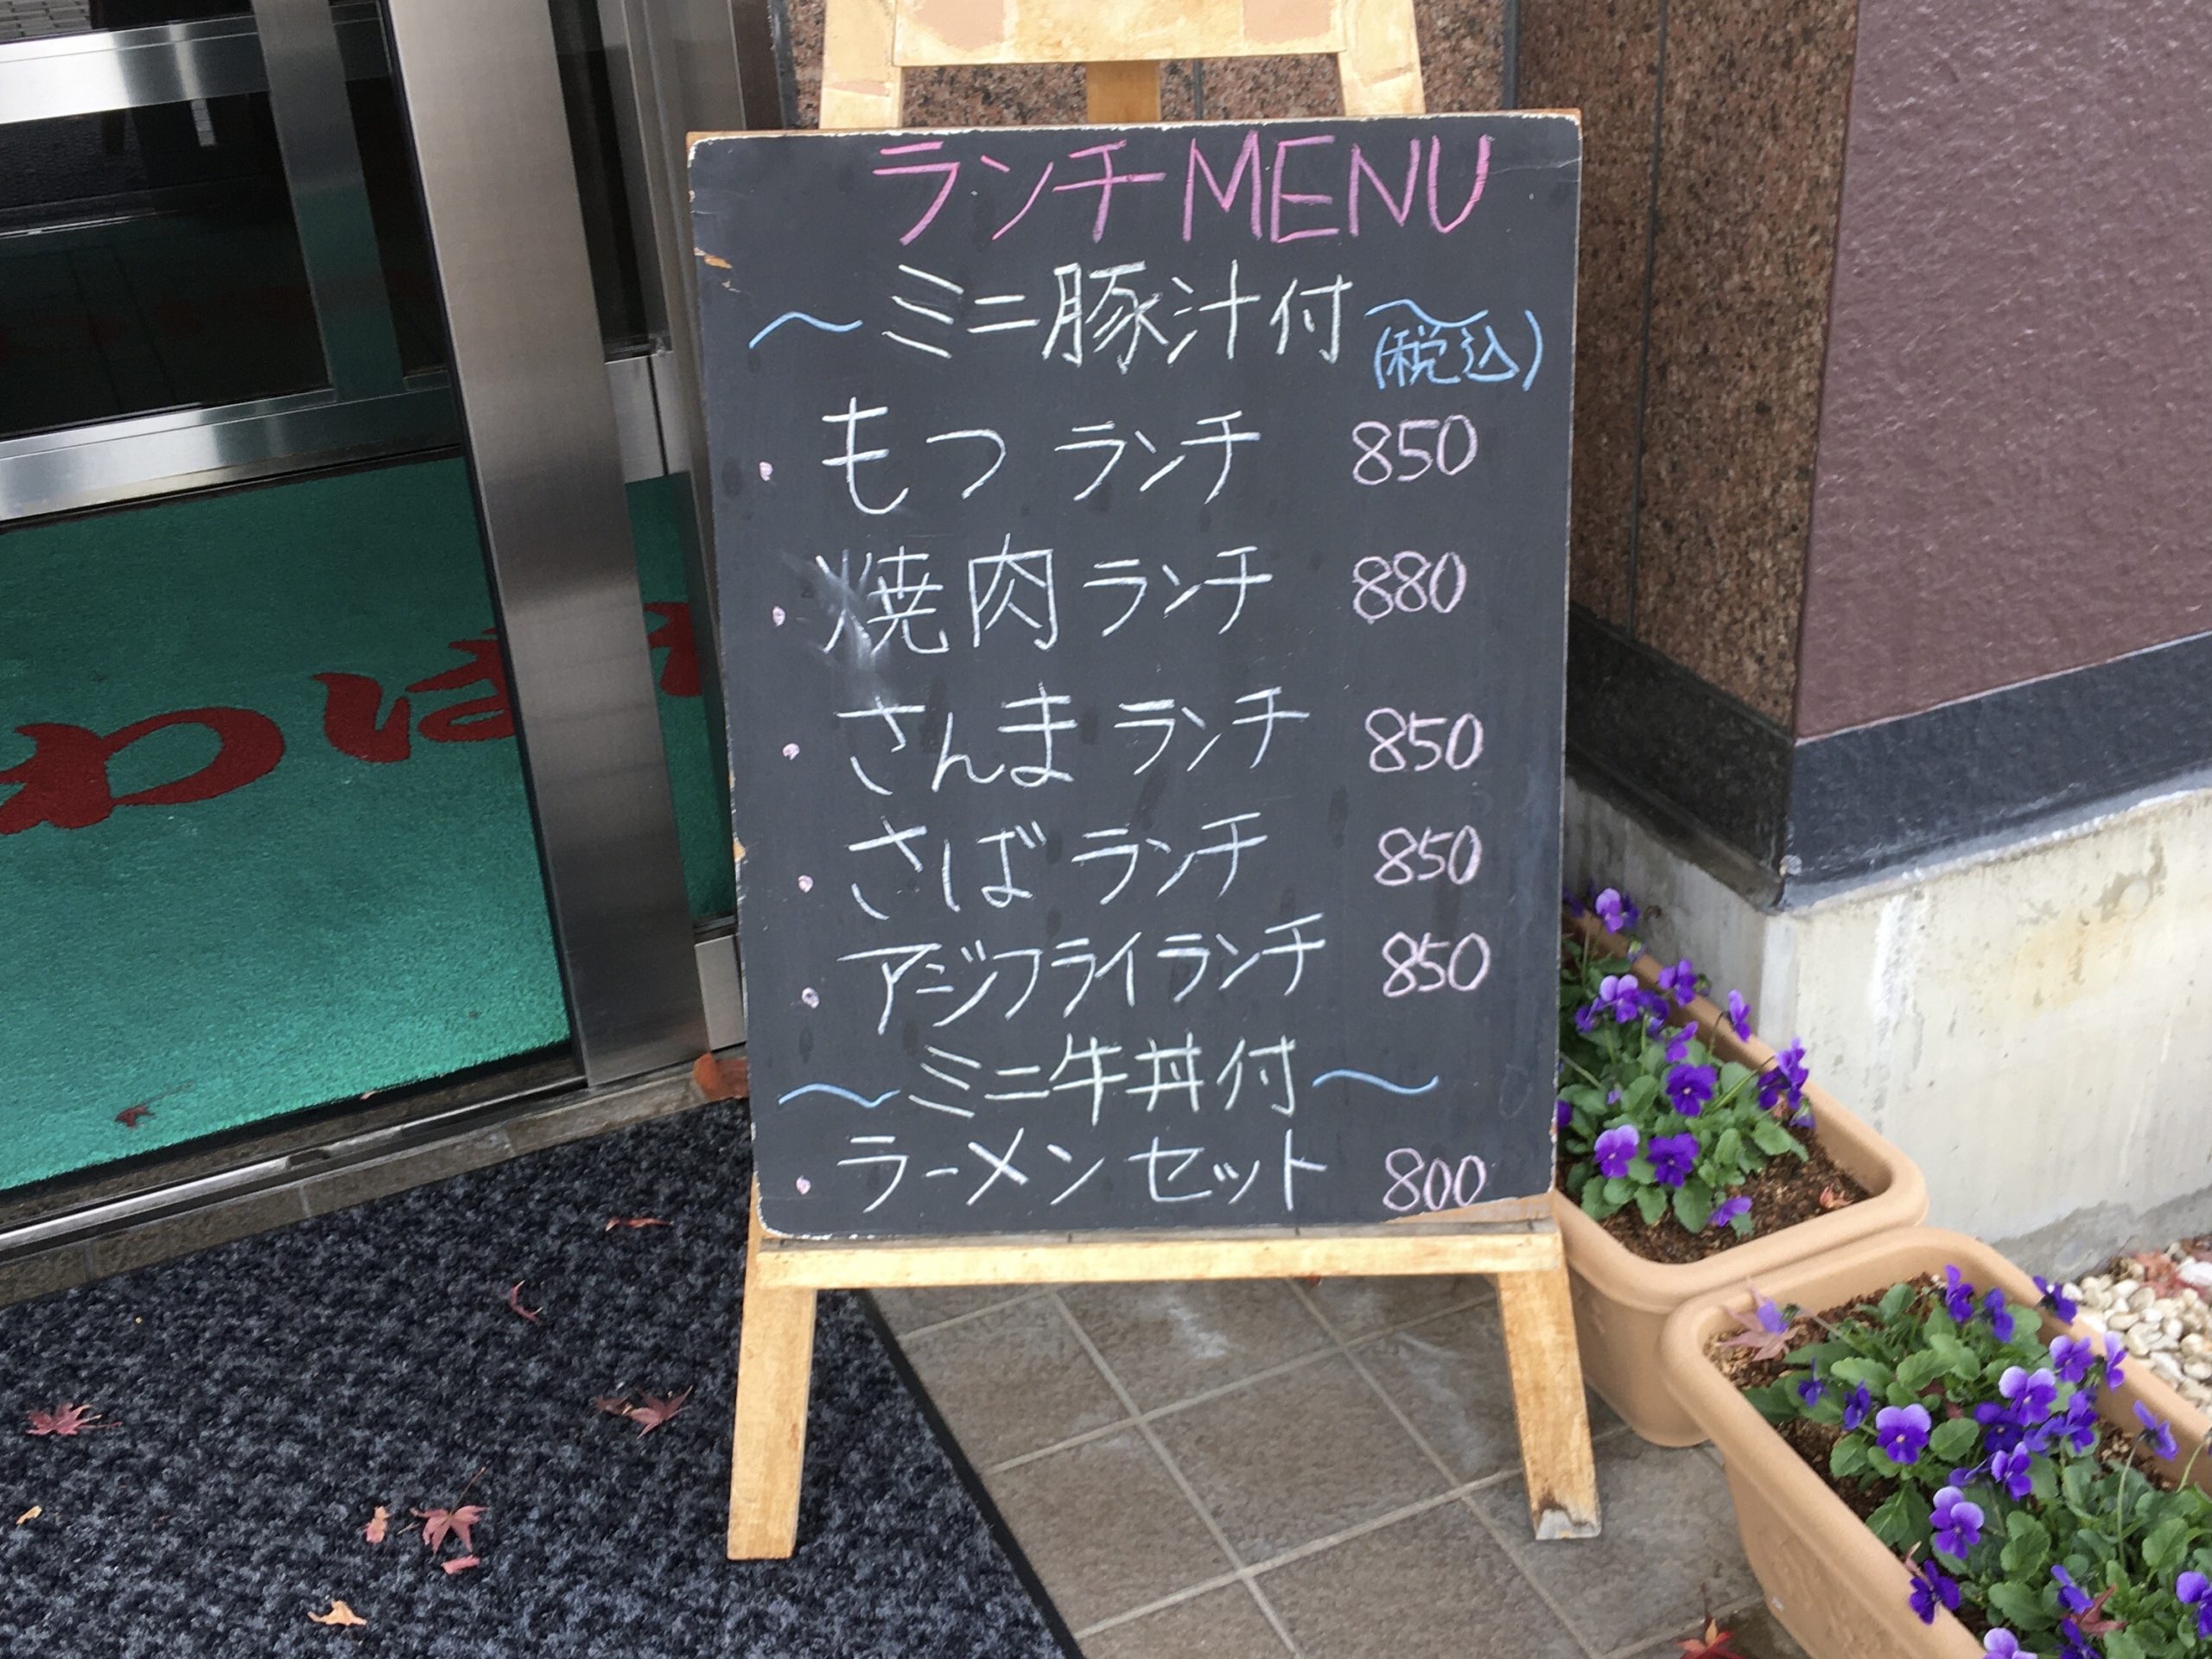 ランチMENU
〜ミニ豚汁付〜
(税込)
・もつランチ 850
・焼肉ランチ 880
・さんまランチ 850
・さばランチ 850
・アジフライランチ 850
〜ミニ牛丼付〜
・ラーメンセット 800